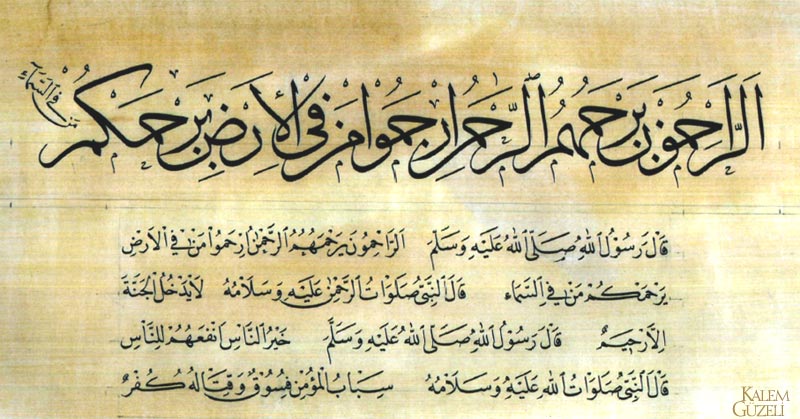 اَلرَّاحِمُونَ يَرْحَمُهُمُ الرَّحْمٰنُ اِرْحَمُوا مَنْ فِي الْاَرْضِ يَرْحَمْكُمْ مَنْ فِي السَّمَاءِ
قَالَ رَسُولُ اللهِ صَلَّى اللهُ عَلَيْهِ وَسَلَّمَ الرَّاحِمُونَ يَرْحَمُهُمُ الرَّحْمٰنُ اِرْحَمُوا مَنْ فِي الْاَرْضِ
يَرْحَمْكُمْ مَنْ فِي السَّمَاءِ قَالَ النَّبِيُّ صَلَوَاتُ الرَّحْمٰنِ عَلَيْهِ وَسَلَامُهُ لَا يَدْخُلُ الْجَنَّةَ
اِلَّا رَحِيمٌ قَالَ رَسُولُ اللهِ صَلَّى اللهُ عَلَيْهِ وَسَلَّمَ خَيْرُ النَّاسِ اَنْفَعُهُمْ لِلنَّاسِ
قَالَ النَّبِيُّ صَلَوَاتُ اللهِ عَلَيْهِ وَسَلَامُهُ سِبَابُ الْمُؤْمِنِ فُسُوقٌ وَقِتَالُهُ كُفْرٌ
KALEM
GÜZELİ